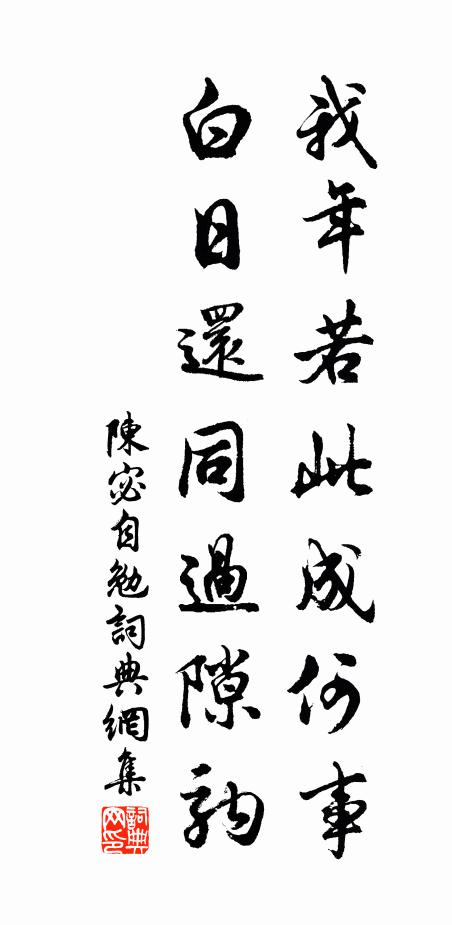 我年若此成何事
白日還同過隙駒
陳宓自勉詞典網集
詞典
网印